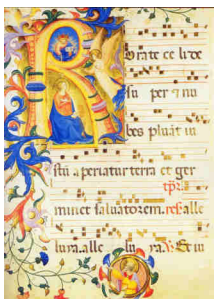 R orate celi de
su per ⁊ nu
bes pluāt iu
stū aperiatur terra et ger
minet saluatorem. alle
luya. alle lu ya. Et iu